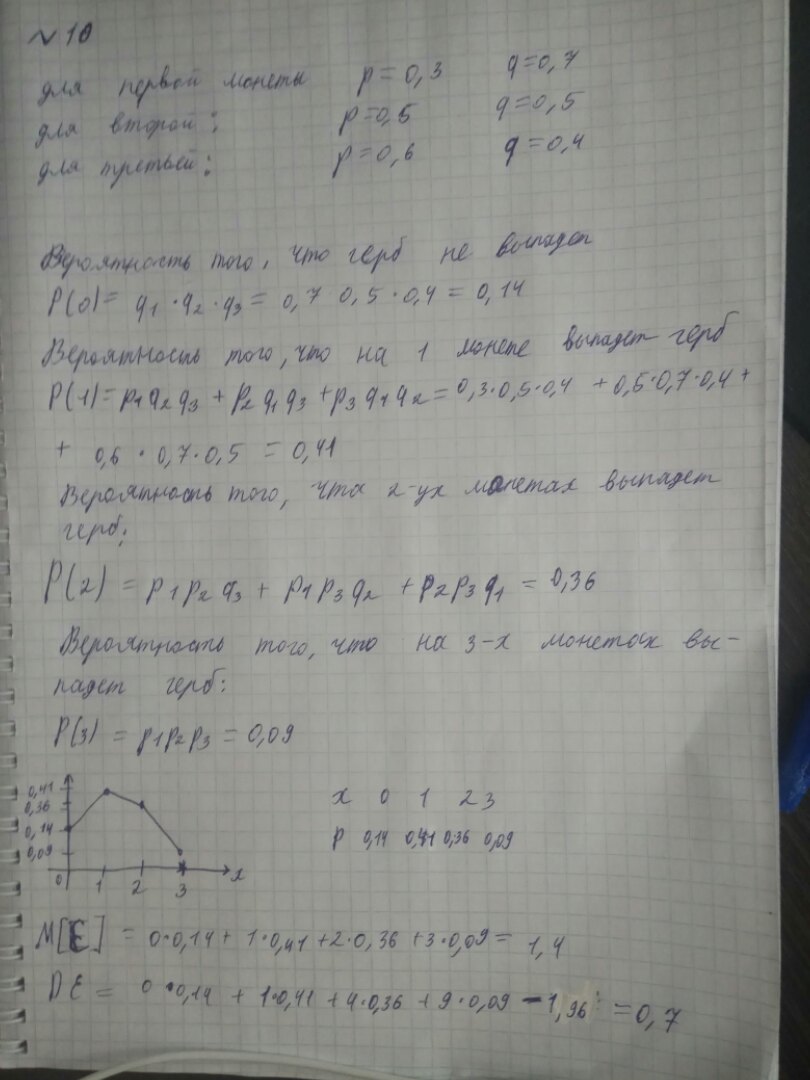 №10
для первой монеты p = 0,3 q=0,7
для второй: p=0,5 q=0,5
для третьей: p=0,6 q=0,4
Вероятность того, что герб не выпадет
P(0)= q1 · q2 · q3 = 0,7 0,5 · 0,4 = 0,14
Вероятность того, что на 1 монете выпадет герб
P(1)= p1q2q3 + p2q1q3 + p3q1q2 = 0,3·0,5·0,4 + 0,5·0,7·0,4 +
+ 0,6 · 0,7·0,5 = 0,41
Вероятность того, что 2-ух монетах выпадет
герб:
P(2) = p1p2q3 + p1p3q2 + p2p3q1 = 0,36
Вероятность того, что на 3-х монетах вы-
падет герб:
P(3) = p1p2p3 = 0,09
0,41
0,36
0,14
0,09
0 1 2 3 x
x 0 1 2 3
p 0,14 0,41 0,36 0,09
M[E] = 0·0,14 + 1·0,41 + 2·0,36 + 3·0,09 = 1,4
DE = 0·0,14 + 1·0,41 + 4·0,36 + 9·0,09 - 1,96 = 0,7